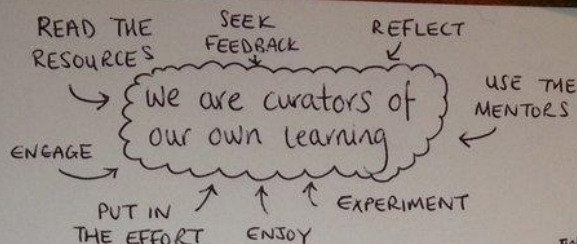 READ THE
RESOURCES
SEEK
FEEDBACK
REFLECT
USE THE
MENTORS
we are curators of
our own learning
ENGAGE
PUT IN
THE EFFORT
ENJOY
EXPERIMENT